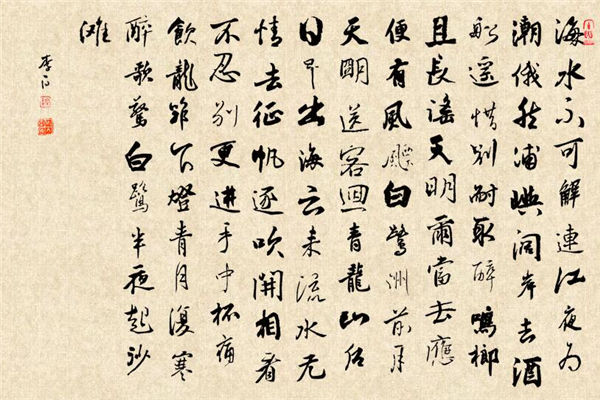 海水不可解連江夜为
潮俄然浦嶼阔岸去酒
船遥惜别耐取醉鳴榔
且長謠天明爾當去應
便有風飄白鷺洲前月
天明送客迴青龍山后
日早出海云来流水无
情去征帆逐吹開相看
不忍别更進手中杯痛
飲龍筇下燈青月復寒
醉歌驚白鷺半夜起沙
滩
李白